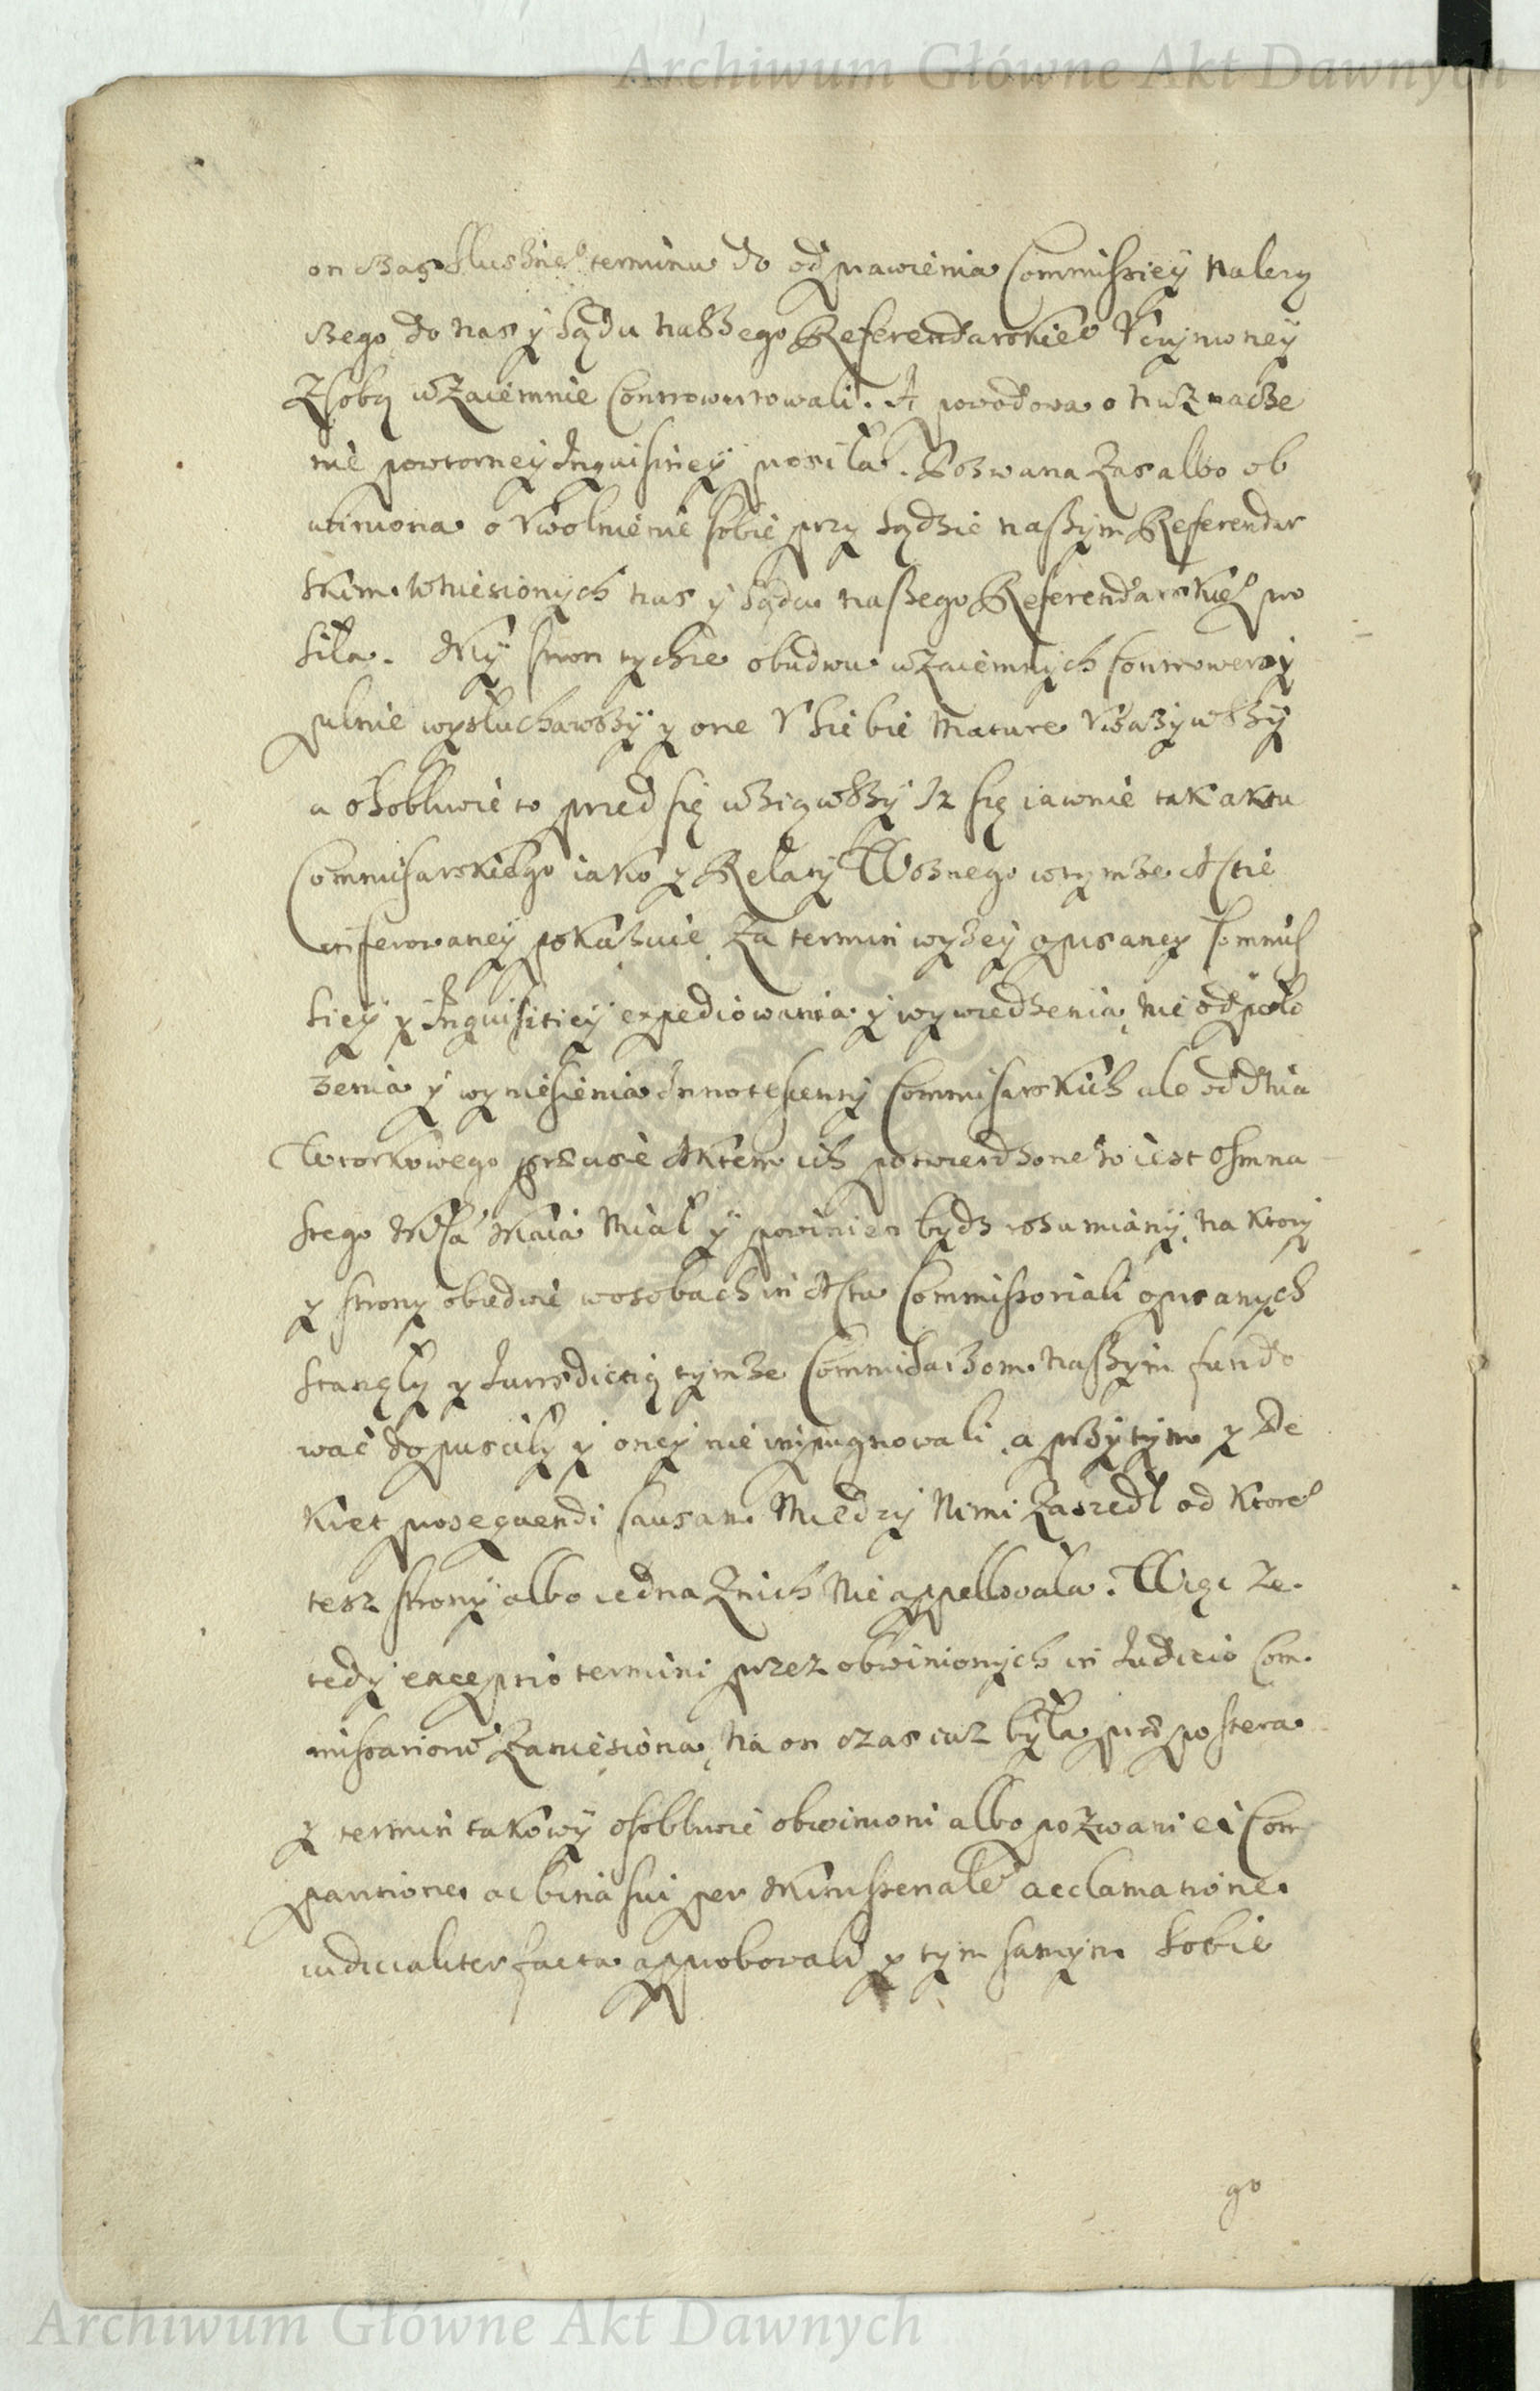 Archiwum Główne Akt Dawnych
on czas słusznego terminu do odprawienia Commissiey należy
szego do nas y Sądu naszego Referendarskiego
z sobą wzaiemnie Controwertowali. A powodowa o naznacze
nie powtorney Inquisitiey prosiła. Pozwana zas albo ob
winiona o vwolnienie sobie przy Sądzie naszym Referendar
skim wniesionych nas y Sądu naszego Referendarskiego pro
siła. My stron tychże obudwu wzaiemnych controwersy
pilnie wysłuchawszy y one v siebie mature vważywszy
a osobliwie to przed się wziąwszy Iż się iawnie tak aktu
Commisarskiego iako y Relaty Woznego w tymże Actie
inferowaney pokazuie, Ze termin wyżey opisaney Commis
siey y Inquisitiey expediowania y wywiedzenia, nie od poło
żenia y wyniesienia Innotescenty Commisarskich ale od dnia
Wtorkowego Aktem ich potwierdzonego to iest osmna
stego Maia Miał y powinien bydz rozumiany, na ktory
y strony obiedwie w osobach in Actu Commissoriali opisanych
stanęły y Iurisdictią tymże Commisarzom naszym fundo
wać dopuscily y oney nie impugnowali, a przytym y De
kret prosequendi causam Miedzy Nimi zaszedł od ktorego
tesz strony albo iedna z nich Nie appellowała. Więc że
tedy exceptio termini przez obwinionych in Iudicio Com
missariorum zaniesiona, na on czas iuż była praepostera
y termin takowy osobliwie obwinioni albo pozwani ex Com
paritione ac bina sui per Ministerialem acclamatione
iudicialiter facta approbowali y tym samym sobie
go
Archiwum Główne Akt Dawnych